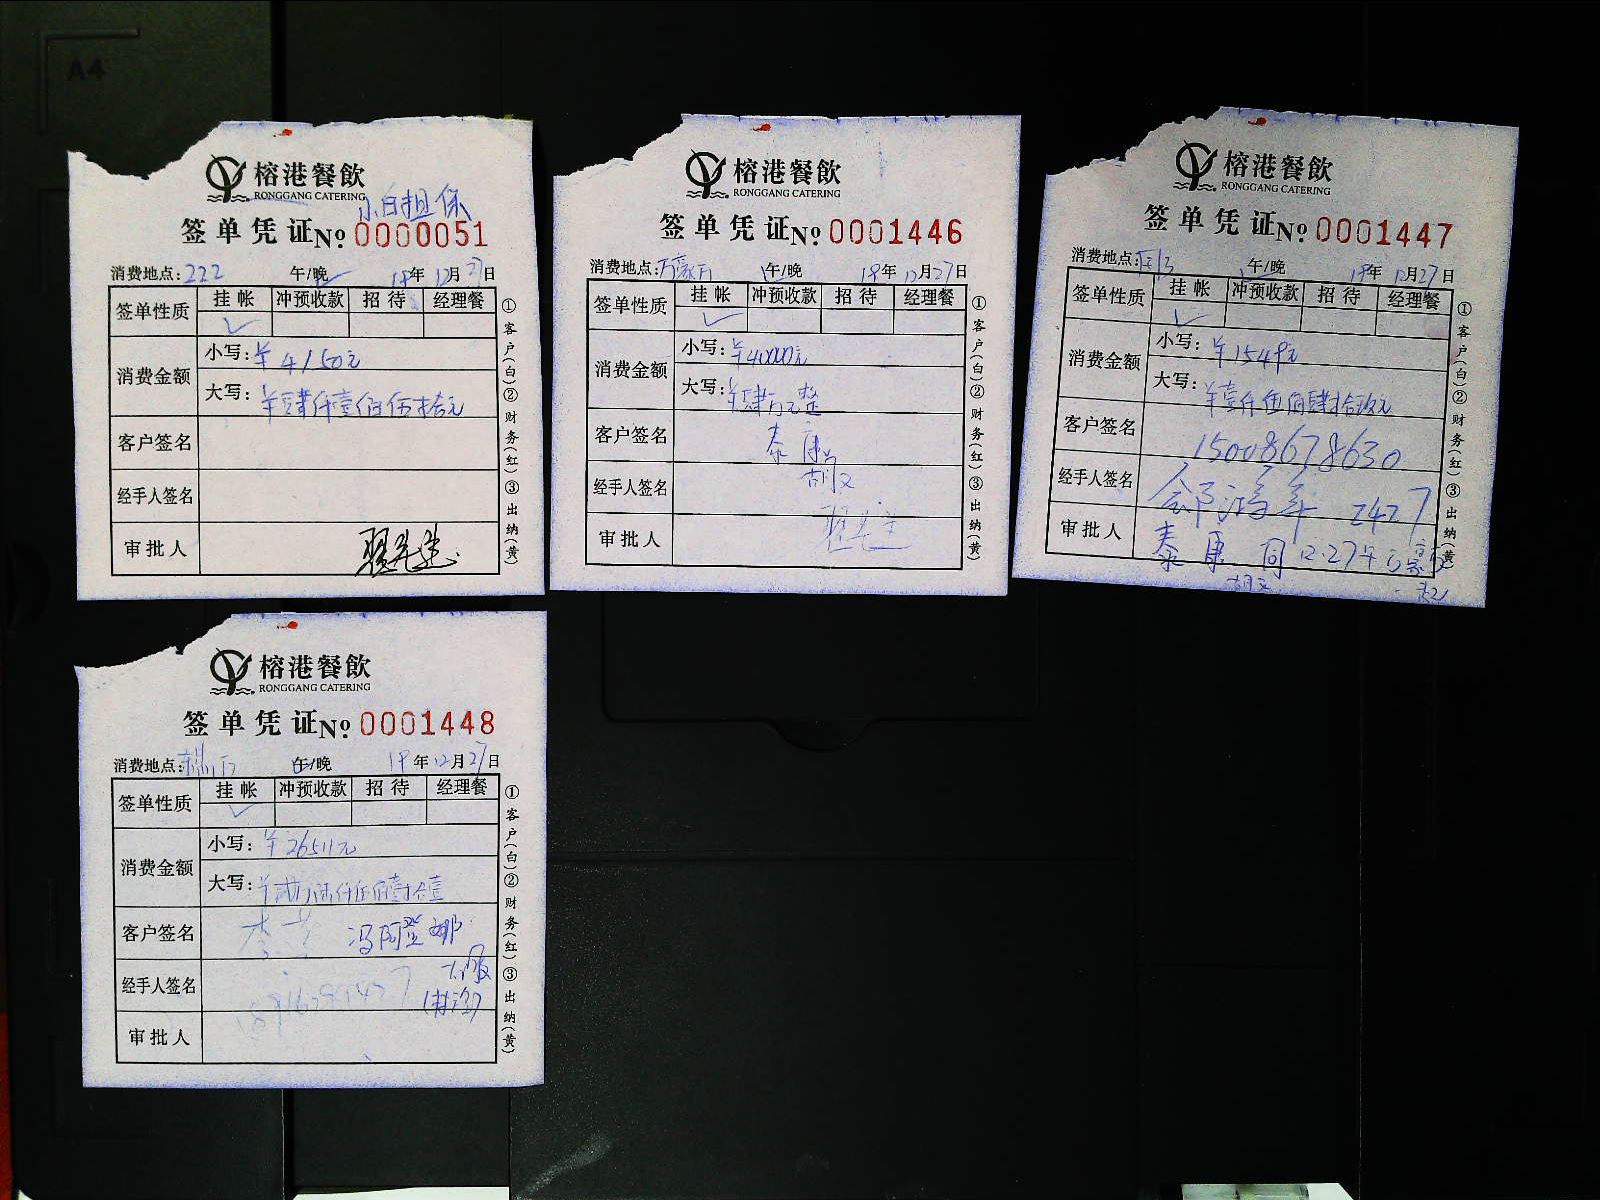 A4
榕港餐飲
RONGGANG CATERING
小白担保
签单凭证 No 0000051
消费地点：222 午/晚 19年12月27日
签单性质 挂帐 冲预收款 招待 经理餐
✓
消费金额 小写：￥4150元
大写：￥肆仟壹佰伍拾元
客户签名
经手人签名
审批人
①客户(白)②财务(红)③出纳(黄)
榕港餐飲
RONGGANG CATERING
签单凭证 No 0001446
消费地点：万豪厅 午/晚 19年12月27日
签单性质 挂帐 冲预收款 招待 经理餐
✓
消费金额 小写：￥40000元
大写：￥肆万元整
客户签名 泰康
胡
经手人签名
审批人
①客户(白)②财务(红)③出纳(黄)
榕港餐飲
RONGGANG CATERING
签单凭证 No 0001447
消费地点： 午/晚 19年12月27日
签单性质 挂帐 冲预收款 招待 经理餐
✓
消费金额 小写：￥1549元
大写：￥壹仟伍佰肆拾玖元
客户签名 15008678630
经手人签名 2427
审批人 泰康 同12.27午
①客户(白)②财务(红)③出纳(黄)
榕港餐飲
RONGGANG CATERING
签单凭证 No 0001448
消费地点： 午/晚 19年12月27日
签单性质 挂帐 冲预收款 招待 经理餐
✓
消费金额 小写：￥26511元
大写：
客户签名 冯阿登娜
经手人签名
审批人
①客户(白)②财务(红)③出纳(黄)